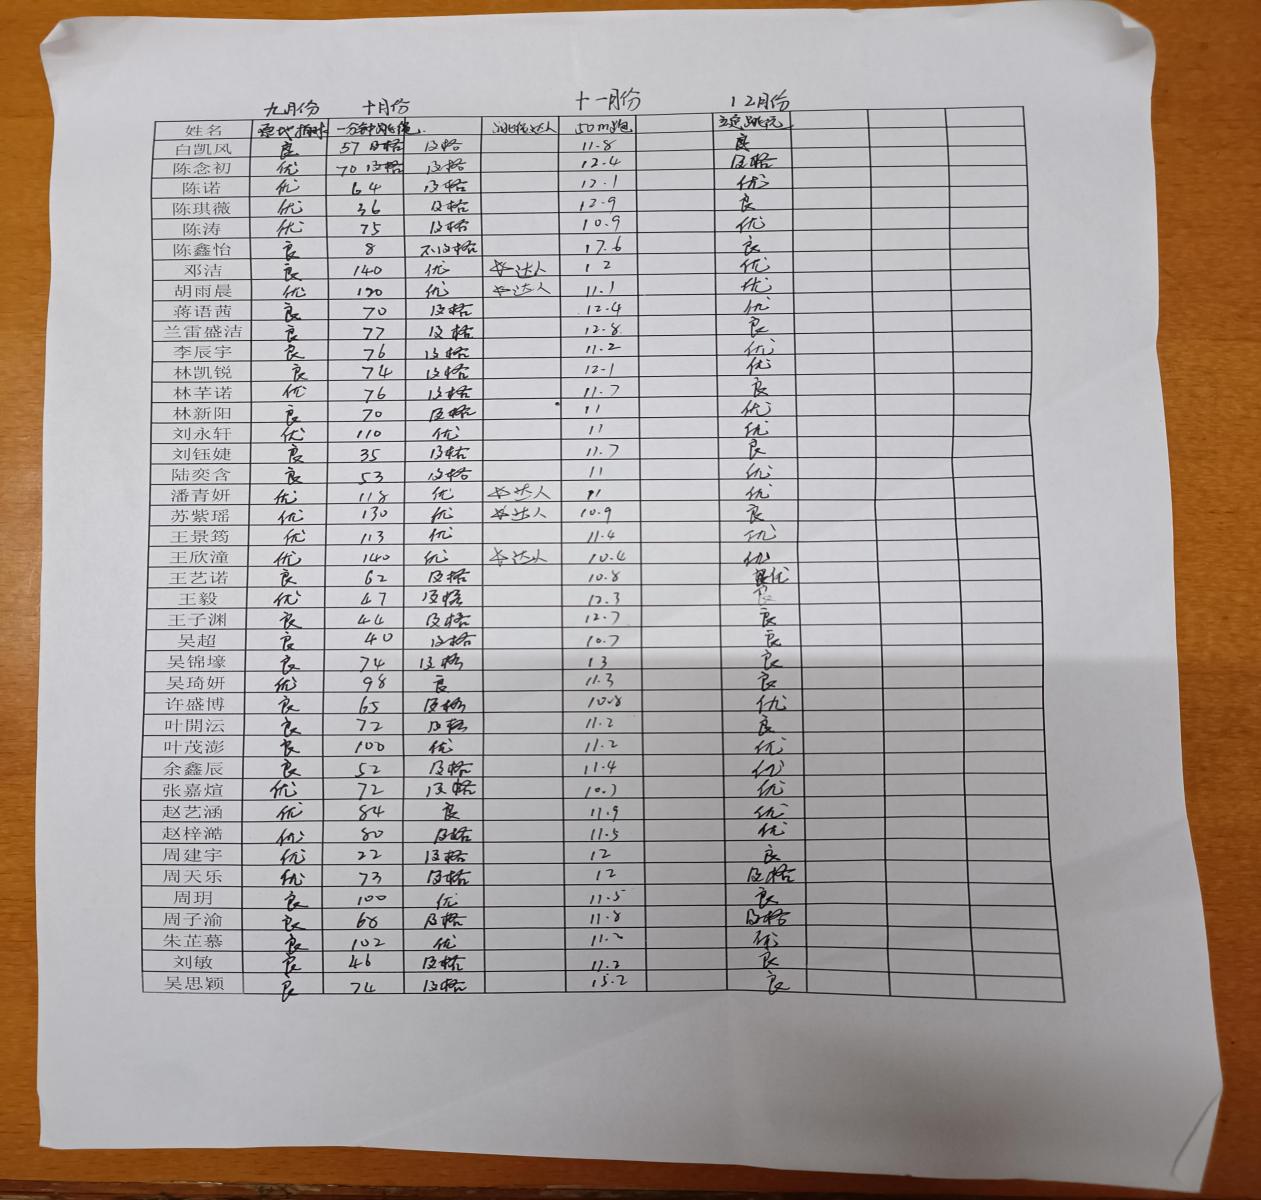 九月份 十月份 十一月份 12月份
姓名 原地拍球 一分钟跳绳 跳绳达人 50m跑 立定跳远
白凯风 良 57 及格 及格 11.8 良
陈念初 优 70 及格 及格 12.4 及格
陈诺 优 64 及格 12.1 优
陈琪薇 优 36 及格 12.9 良
陈涛 优 75 及格 10.9 优
陈鑫怡 良 8 不及格 17.6 良
邓洁 良 140 优 达人 12 优
胡雨晨 优 190 优 达人 11.1 优
蒋语茜 良 70 及格 12.4 优
兰雷盛洁 良 77 及格 12.8 良
李辰宇 良 76 及格 11.2 优
林凯锐 良 74 及格 12.1 优
林芊诺 优 76 及格 11.7 良
林新阳 良 70 及格 11 优
刘永轩 优 110 优 11 优
刘钰婕 良 35 及格 11.7 良
陆奕含 良 53 及格 11 优
潘青妍 优 118 优 达人 11 优
苏紫瑶 优 130 优 达人 10.9 良
王景筠 优 113 优 11.4 优
王欣潼 优 140 优 达人 10.4 优
王艺诺 良 62 及格 10.8 优
王毅 优 47 及格 12.3 良
王子渊 良 44 及格 12.7 良
吴超 良 40 及格 10.7 良
吴锦壕 良 74 及格 13 良
吴琦妍 优 98 良 11.3 良
许盛博 良 65 及格 10.8 优
叶開沄 良 72 及格 11.2 良
叶茂澎 良 100 优 11.2 优
余鑫辰 良 52 及格 11.4 优
张嘉煊 优 72 及格 10.7 优
赵艺涵 优 84 良 11.9 优
赵梓澔 优 80 及格 11.5 优
周建宇 优 22 及格 12 良
周天乐 优 73 及格 12 及格
周玥 良 100 优 11.5 良
周子渝 良 68 及格 11.8 及格
朱芷慕 良 102 优 11.2 优
刘敏 良 46 及格 11.2 良
吴思颖 良 74 及格 13.2 良